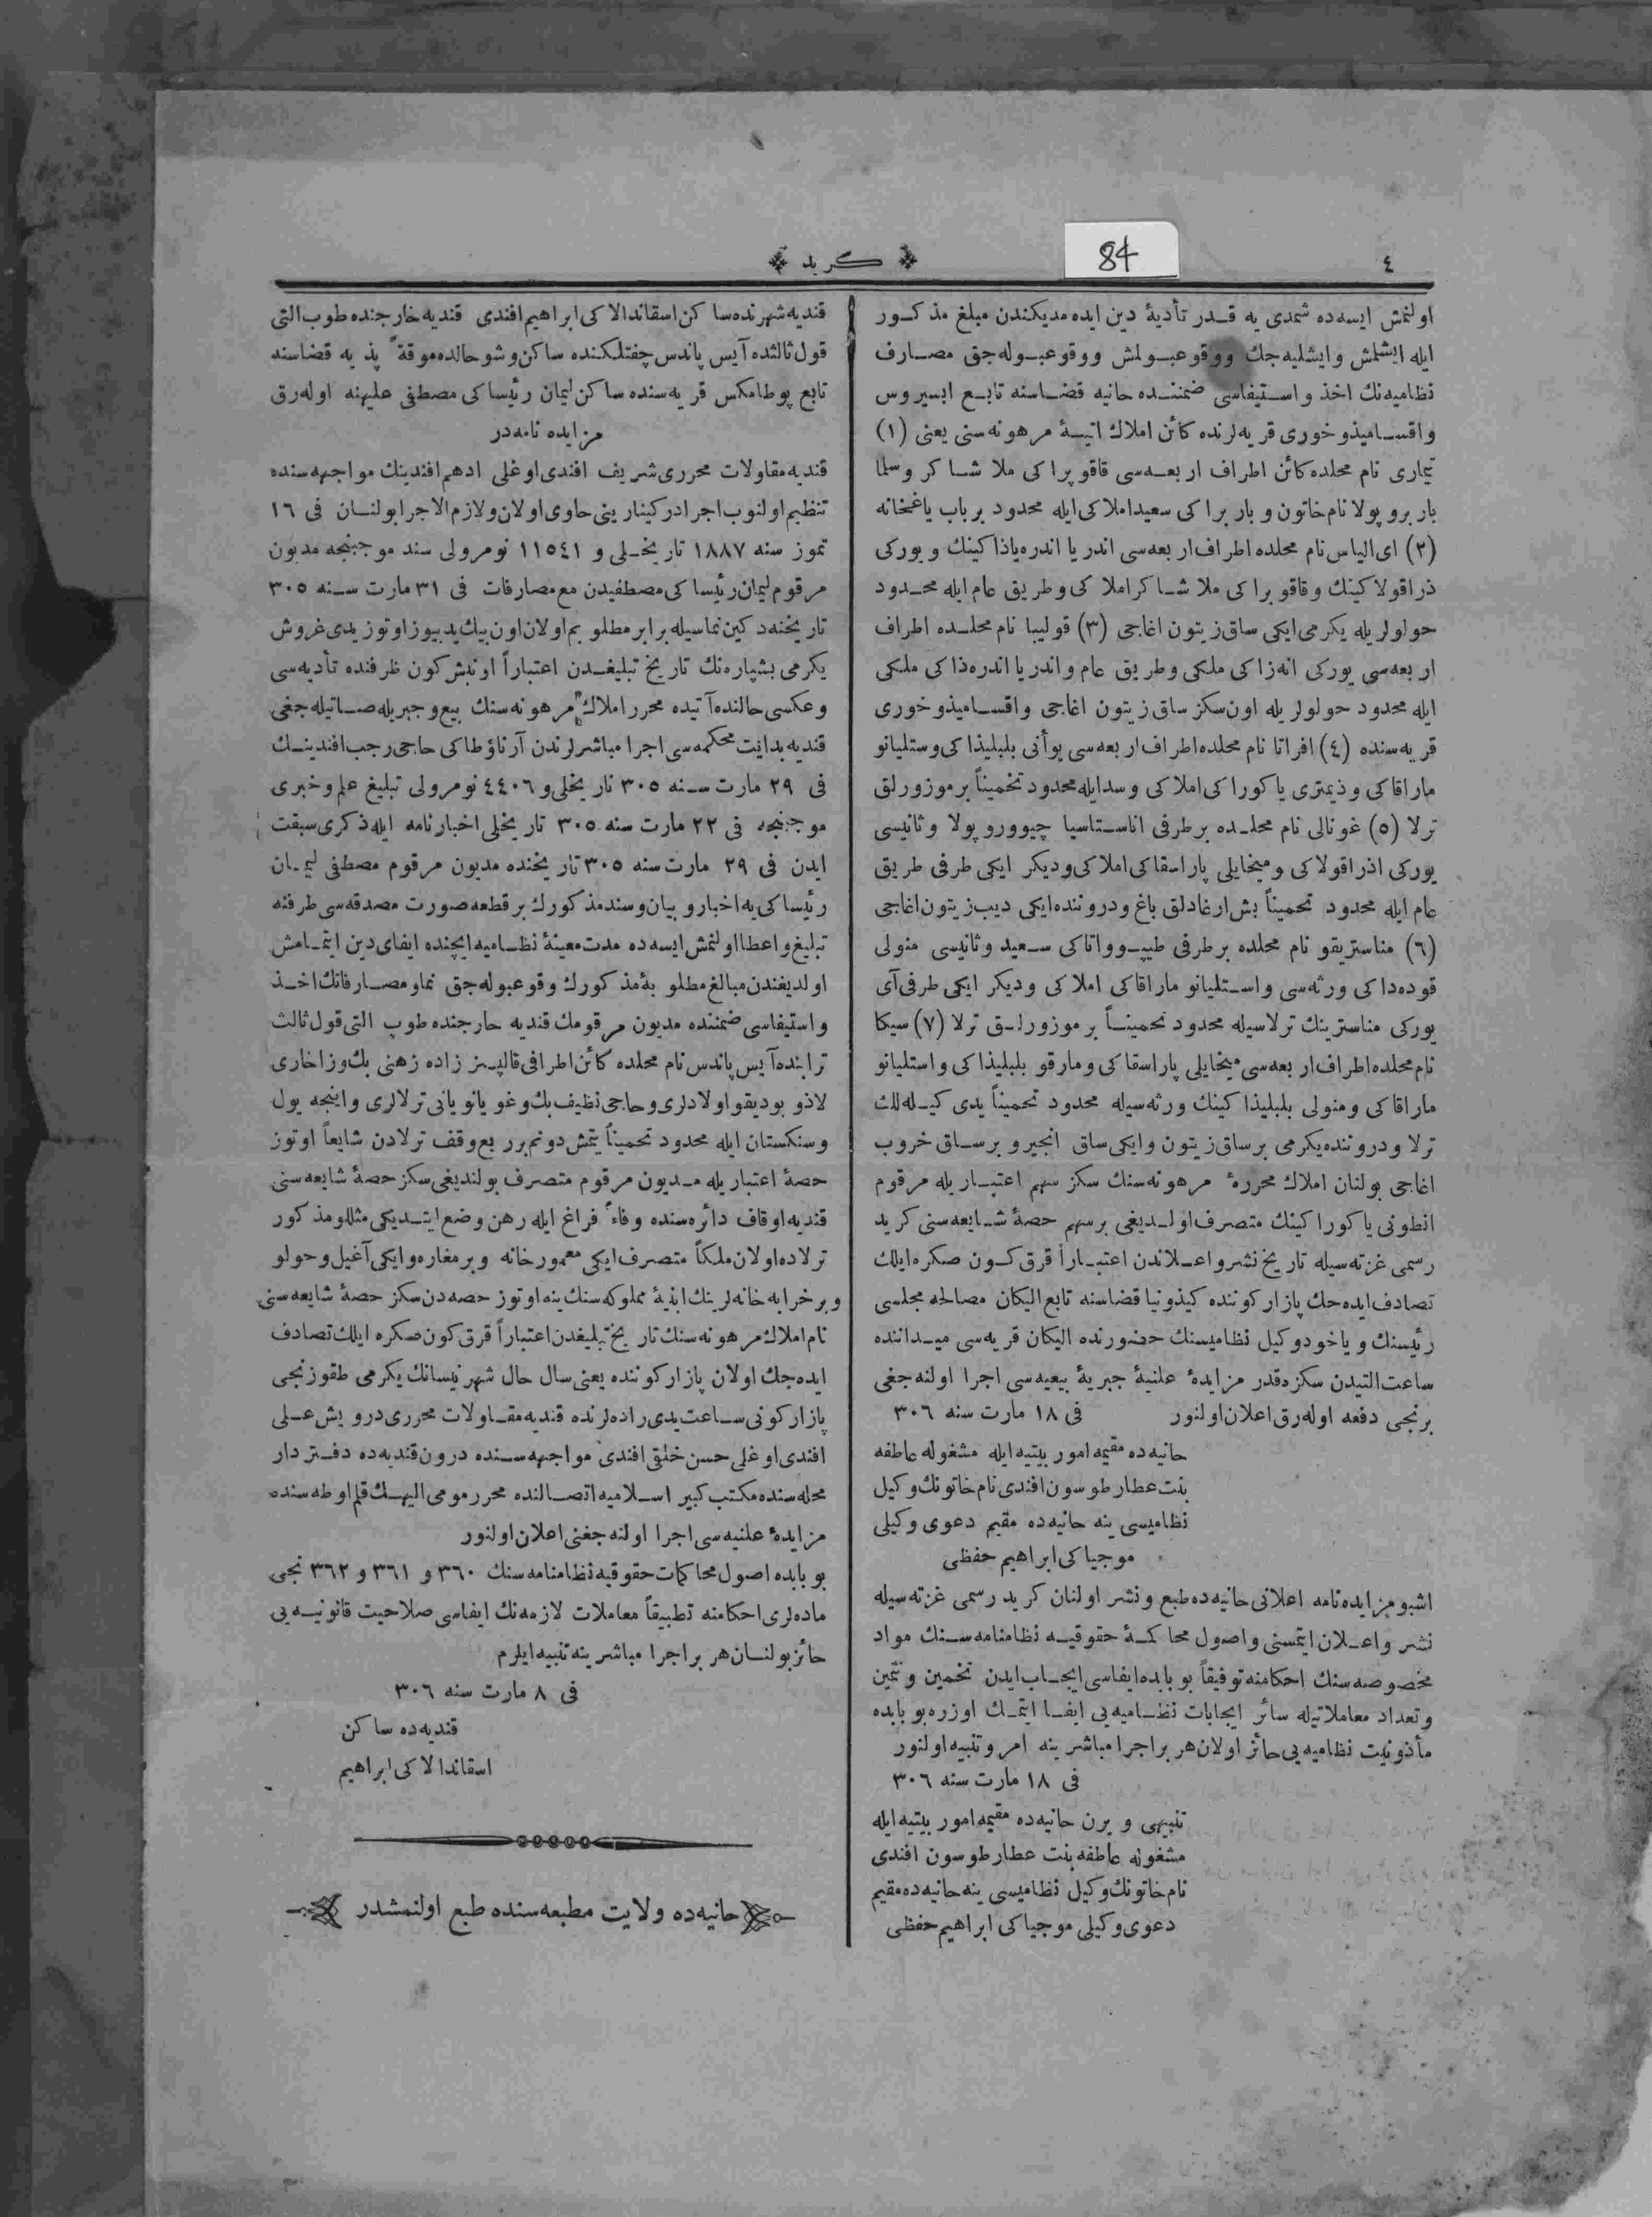 ٤
84
كريد
اولنمش ايسه‌ده شمدى‌يه قدر تأديهٔ دين ايده‌مديكندن مبلغ مذكور
ايله ايشلمش و ايشليه‌جك ووقوعبولمش ووقوعبوله‌جق مصارف
نظاميه‌نك اخذ و استيفاسى ضمننده حانيه قضاسنه تابع ابسيروس
و اقساميذوخورى قريه‌لرنده كائن املاك اتيهٔ مرهونه‌سنى يعنى (١)
تيمارى نام محلده كائن اطراف اربعه‌سى قاقوپراكى ملا شاكر وسلما
باربروپولا نام خاتون و باربراكى سعيد املاكى ايله محدود بر باب ياغخانه
(٢) اى الياس نام محلده اطراف اربعه‌سى اندريا اندره‌ياذاكينك و يوركى
ذراقولاكينك وقاقوبراكى ملا شاكر املاكى وطريق عام ايله محدود
حولولريله يكرمى ايكى ساق زيتون اغاجى (٣) قوليبا نام محلده اطراف
اربعه‌سى يوركى انه‌زاكى ملكى وطريق عام و اندريا اندره‌ذاكى ملكى
ايله محدود حولولريله اون سكز ساق زيتون اغاجى واقساميذوخورى
قريه‌سنده (٤) افراتا نام محلده اطراف اربعه‌سى يوأنى بلبليذاكى وستليانو
ماراقاكى وذيمترى ياكوراكى املاكى وسد ايله محدود تخميناً بر موزورلق
ترلا (٥) غونالى نام محلده بر طرفى اناستاسيا چيوورو پولا وثانيسى
يوركى اذراقولاكى و ميخايلى پاراسقاكى املاكى و ديكر ايكى طرفى طريق
عام ايله محدود تحميناً بش ارغادلق باغ ودروننده ايكى ديب زيتون اغاجى
(٦) مناستريقو نام محلده بر طرفى طيپوواتاكى سعيد وثانيسى منولى
قوده‌داكى ورثه‌سى و استليانو ماراقاكى املاكى و ديكر ايكى طرفى آى
يوركى مناسترينك ترلاسيله محدود تحميناً بر موزورلق ترلا (٧) سيكا
نام محلده اطراف اربعه‌سى ميخايلى پاراسقاكى ومارقو بلبليذاكى و استليانو
ماراقاكى ومنولى بلبليذاكينك ورثه‌سيله محدود تحميناً يدى كيله‌لك
ترلا ودروننده يكرمى بر ساق زيتون و ايكى ساق انجير و بر ساق خروب
اغاجى بولنان املاك محررهٔ مرهونه‌سنك سكز سهم اعتباريله مرقوم
انطونى ياكوراكينك متصرف اولديغى برسهم حصهٔ شايعه‌سنى كريد
رسمى غزته‌سيله تاريخ نشر و اعلاندن اعتباراً قرق كون صكره ايلك
تصادف ايده‌جك پازار كوننده كيذونيا قضاسنه تابع اليكان مصالحه مجلسى
رئيسنك و ياخود وكيل نظاميسنك حضورنده اليكان قريه‌سى ميداننده
ساعت التيدن سكزه‌قدر مزايدهٔ علنيهٔ جبريهٔ بيعيه‌سى اجرا اولنه‌جغى
برنجى دفعه اوله‌رق اعلان اولنور فى ١٨ مارت سنه ٣٠٦
حانيه‌ده مقيمه امور بيتيه ايله مشغوله عاطفه
بنت عطار طوسون افندى نام خاتونك وكيل
نظاميسى ينه حانيه‌ده مقيم دعوى وكيلى
موجياكى ابراهيم حفظى
اشبو مزايده‌نامه اعلانى حانيه‌ده طبع و نشر اولنان كريد رسمى غزته‌سيله
نشر واعلان ايتمسنى و اصول محاكمهٔ حقوقيه نظامنامه‌سنك مواد
مخصوصه‌سنك احكامنه توفيقاً بو بابده ايفاسى ايجاب ايدن تخمين و تثمين
وتعداد معاملاتيله سائر ايجابات نظاميه‌يى ايفا ايتمك اوزره بو بابده
مأذونيت نظاميه‌يى حائز اولان هر بر اجرا مباشرينه امر و تنبيه اولنور
فى ١٨ مارت سنه ٣٠٦
تنبيهى ويرن حانيه‌ده مقيمه امور بيتيه ايله
مشغوله عاطفه بنت عطار طوسون افندى
نام خاتونك وكيل نظاميسى ينه حانيه‌ده مقيم
دعوى وكيلى موجياكى ابراهيم حفظى
قنديه شهرنده ساكن اسقاندالاكى ابراهيم افندى قنديه خارجنده طوب التى
قول ثالثده آيس پاندس چفتلكنده ساكن وشو حالده موقةً پذيه قضاسنه
تابع پوطامكس قريه‌سنده ساكن ليمان رئيساكى مصطفى عليهنه اوله‌رق
مزايده نامه‌در
قنديه مقاولات محررى شريف افندى اوغلى ادهم افندينك مواجهه‌سنده
تنظيم اولنوب اجرا دركينارينى حاوى اولان ولازم الاجرا بولنان فى ١٦
تموز سنه ١٨٨٧ تاريخلى و ١١٥٤١ نومرولى سند موجبنجه مديون
مرقوم ليمان رئيساكى مصطفيدن مع مصارفات فى ٣١ مارت سنه ٣٠٥
تاريخنه‌دكين نماسيله برابر مطلوبم اولان اون بيك يديوز اوتوز يدى غروش
يكرمى بشپاره‌نك تاريخ تبليغدن اعتباراً اونبش كون ظرفنده تأديه‌سى
وعكسى حالنده آتيده محرر املاك مرهونه‌سنك بيع وجبريله صاتيله‌جغى
قنديه بدايت محكمه‌سى اجرا مباشرلرندن آرناؤطاكى حاجى رجب افندينك
فى ٢٩ مارت سنه ٣٠٥ تاريخلى و ٤٤٠٦ نومرولى تبليغ علم وخبرى
موجبنجه فى ٢٢ مارت سنه ٣٠٥ تاريخلى اخبارنامه ايله ذكرى سبقت
ايدن فى ٢٩ مارت سنه ٣٠٥ تاريخنده مديون مرقوم مصطفى ليمان
رئيساكى‌يه اخبار و بيان وسند مذكورك بر قطعه صورت مصدقه‌سى طرفنه
تبليغ واعطا اولنمش ايسه‌ده مدت معينهٔ نظاميه ايچنده ايفاى دين ايتمامش
اولديغندن مبالغ مطلوبهٔ مذكورك وقوعبوله‌جق نما ومصارفاتك اخذ
و استيفاسى ضمننده مديون مرقومك قنديه حارجنده طوپ التى قول ثالث
ترابنده آيس پاندس نام محلده كائن اطرافى قالپسز زاده زهنى بك وزاخارى
لاذو بوديقو اولادلرى وحاجى نظيف بك وغو يانو يانى ترلالرى و اينجه يول
وسنكستان ايله محدود تحميناً يتمش دونم بر ربع وقف ترلادن شايعاً اوتوز
حصهٔ اعتباريله مديون مرقوم متصرف بولنديغى سكز حصهٔ شايعه‌سنى
قنديه اوقاف دائره‌سنده وفاءً فراغ ايله رهن وضع ايتديكى مثللو مذكور
ترلاده اولان ملكاً متصرف ايكى معمور خانه وبر مغاره وايكى آغيل وحولو
وبر خرابه خانه‌لرينك ابنيهٔ مملوكه‌سنك ينه اوتوز حصه‌دن سكز حصهٔ شايعه‌سنى
نام املاك مرهونه‌سنك تاريخ تبليغدن اعتباراً قرق كون صكره ايلك تصادف
ايده‌جك اولان پازار كوننده يعنى سال حال شهر نيسانك يكرمى طقوزنجى
پازار كونى ساعت يدى راده‌لرنده قنديه مقاولات محررى درويش على
افندى اوغلى حسن خلقى افندى مواجهه‌سنده درون قنديه‌ده دفتردار
محله‌سنده مكتب كبير اسلاميه اتصالنده محرر مومى اليهك قلم اوطه‌سنده
مزايدهٔ علنيه‌سى اجرا اولنه‌جغنى اعلان اولنور
بو بابده اصول محاكمات حقوقيه نظامنامه‌سنك ٣٦٠ و ٣٦١ و ٣٦٢ نجى
ماده‌لرى احكامنه تطبيقاً معاملات لازمه‌نك ايفاسى صلاحيت قانونيه‌يى
حائز بولنان هر بر اجرا مباشرينه تنبيه ايلرم
فى ٨ مارت سنه ٣٠٦
قنديه‌ده ساكن
اسقاندالاكى ابراهيم
حانيه‌ده ولايت مطبعه‌سنده طبع اولنمشدر